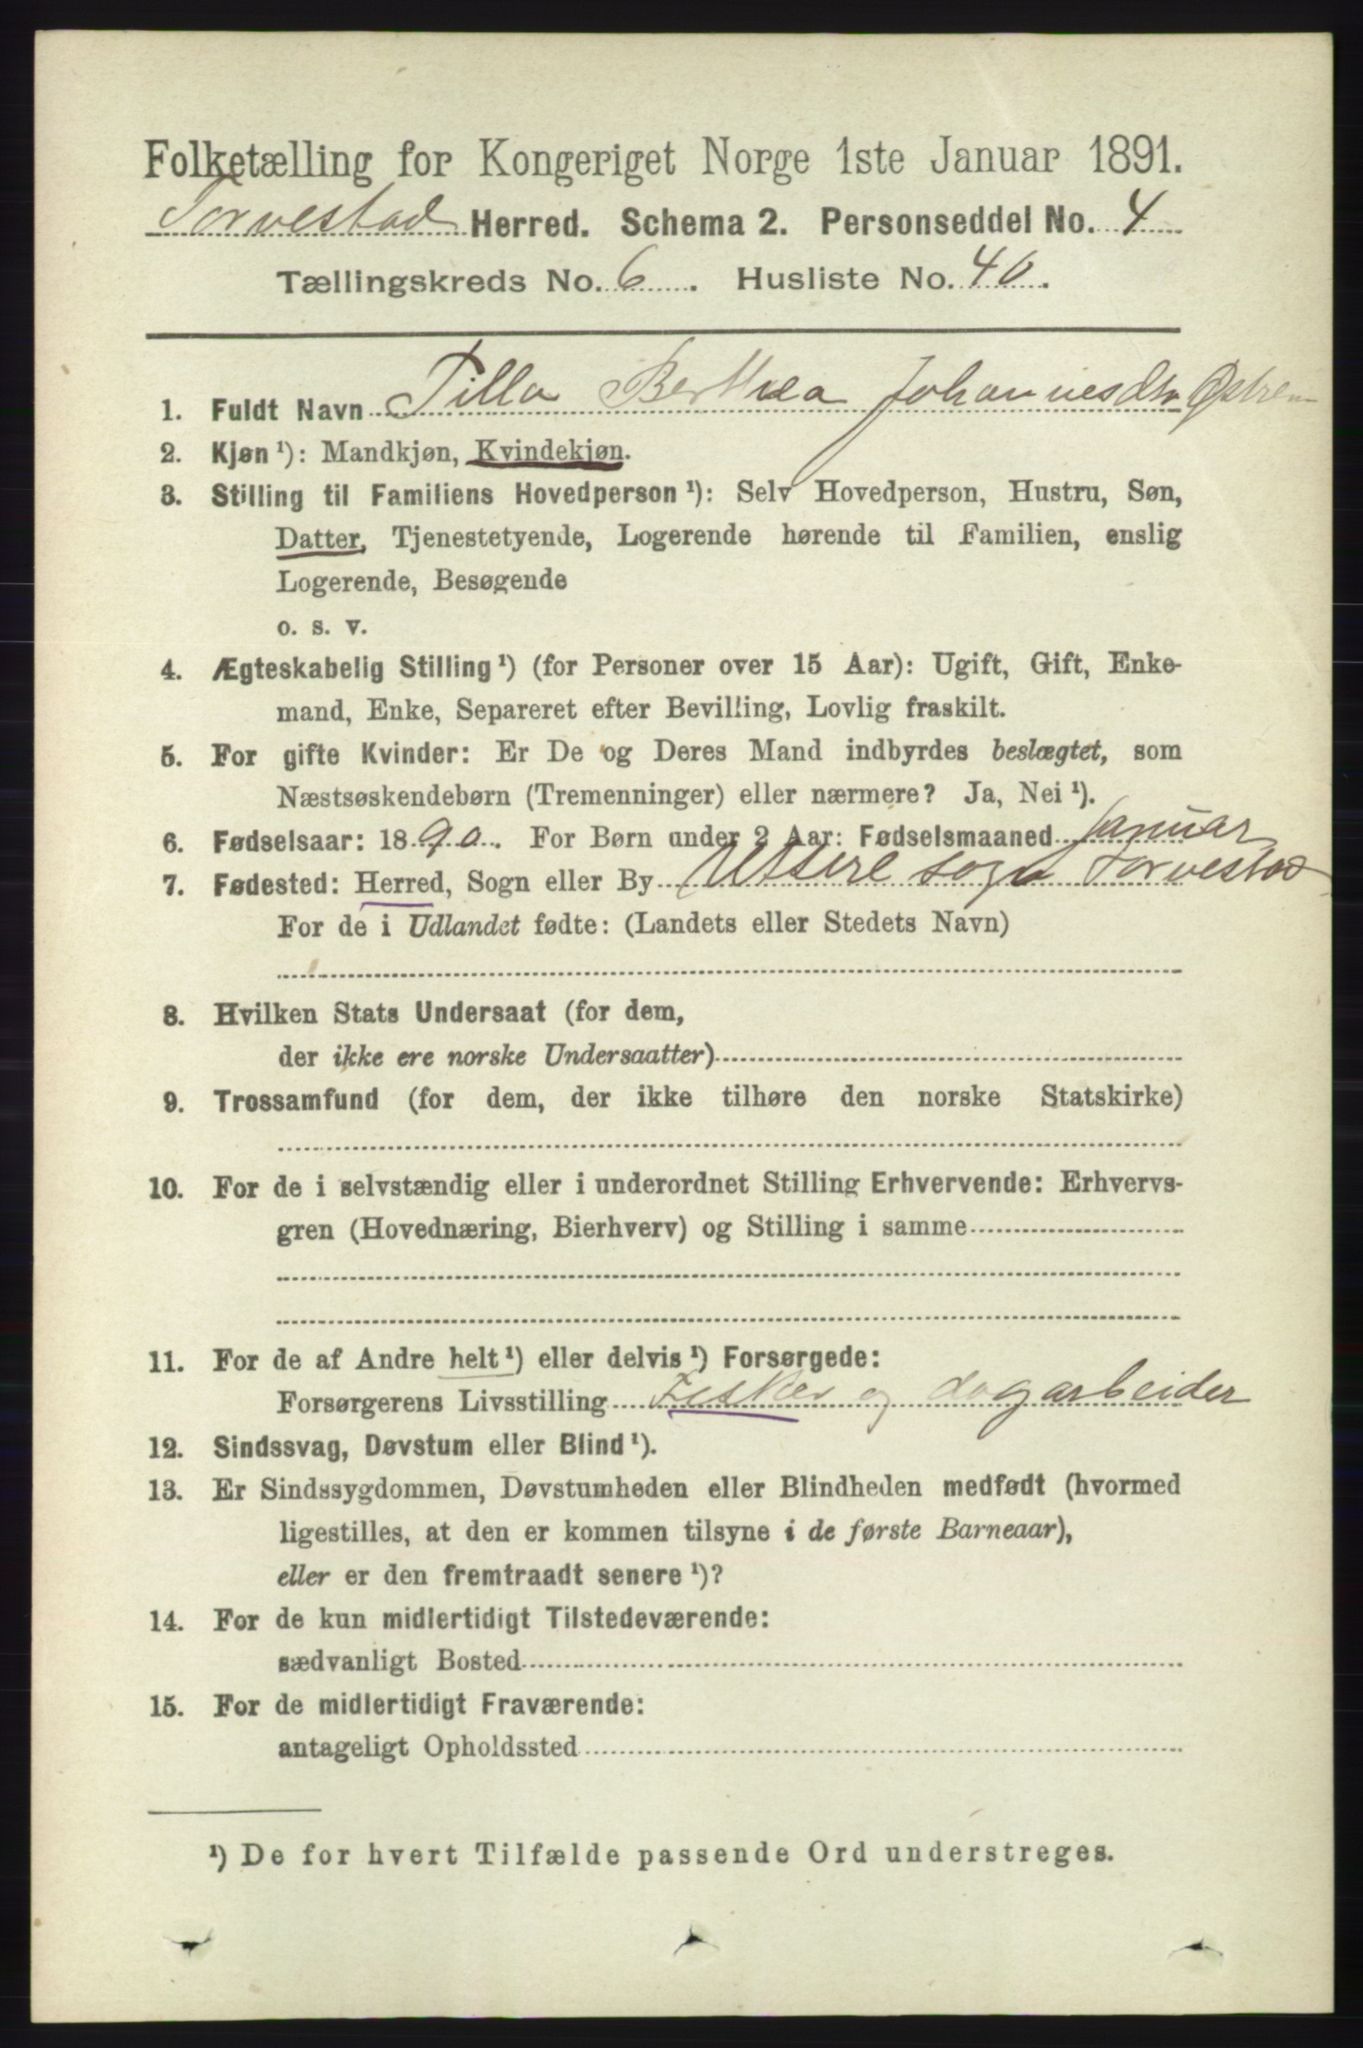 Folketælling for Kongeriget Norge 1ste Januar 1891.
Torvestad Herred. Schema 2. Personseddel No. 4
Tællingskreds No. 6. Husliste No. 40.
1. Fuldt Navn Tilla Berthea Johannesdtr Østre
2. Kjøn ¹): Mandkjøn, Kvindekjøn.
3. Stilling til Familiens Hovedperson ¹): Selv Hovedperson, Hustru, Søn,
Datter, Tjenestetyende, Logerende hørende til Familien, enslig
Logerende, Besøgende
o. s. v.
4. Ægteskabelig Stilling ¹) (for Personer over 15 Aar): Ugift, Gift, Enke-
mand, Enke, Separeret efter Bevilling, Lovlig fraskilt.
5. For gifte Kvinder: Er De og Deres Mand indbyrdes beslægtet, som
Næstsøskendebørn (Tremenninger) eller nærmere? Ja, Nei ¹).
6. Fødselsaar: 1890. For Børn under 2 Aar: Fødselsmaaned Januar
7. Fødested: Herred, Sogn eller By Utsire sogn Torvestad
For de i Udlandet fødte: (Landets eller Stedets Navn)
8. Hvilken Stats Undersaat (for dem,
der ikke ere norske Undersaatter)
9. Trossamfund (for dem, der ikke tilhøre den norske Statskirke)
10. For de i selvstændig eller i underordnet Stilling Erhvervende: Erhvervs-
gren (Hovednæring, Bierhverv) og Stilling i samme
11. For de af Andre helt ¹) eller delvis ¹) Forsørgede:
Forsørgerens Livsstilling Fisker og dagarbeider
12. Sindssvag, Døvstum eller Blind ¹).
13. Er Sindssygdommen, Døvstumheden eller Blindheden medfødt (hvormed
ligestilles, at den er kommen tilsyne i de første Barneaar),
eller er den fremtraadt senere ¹)?
14. For de kun midlertidigt Tilstedeværende:
sædvanligt Bosted
15. For de midlertidigt Fraværende:
antageligt Opholdssted
¹) De for hvert Tilfælde passende Ord understreges.